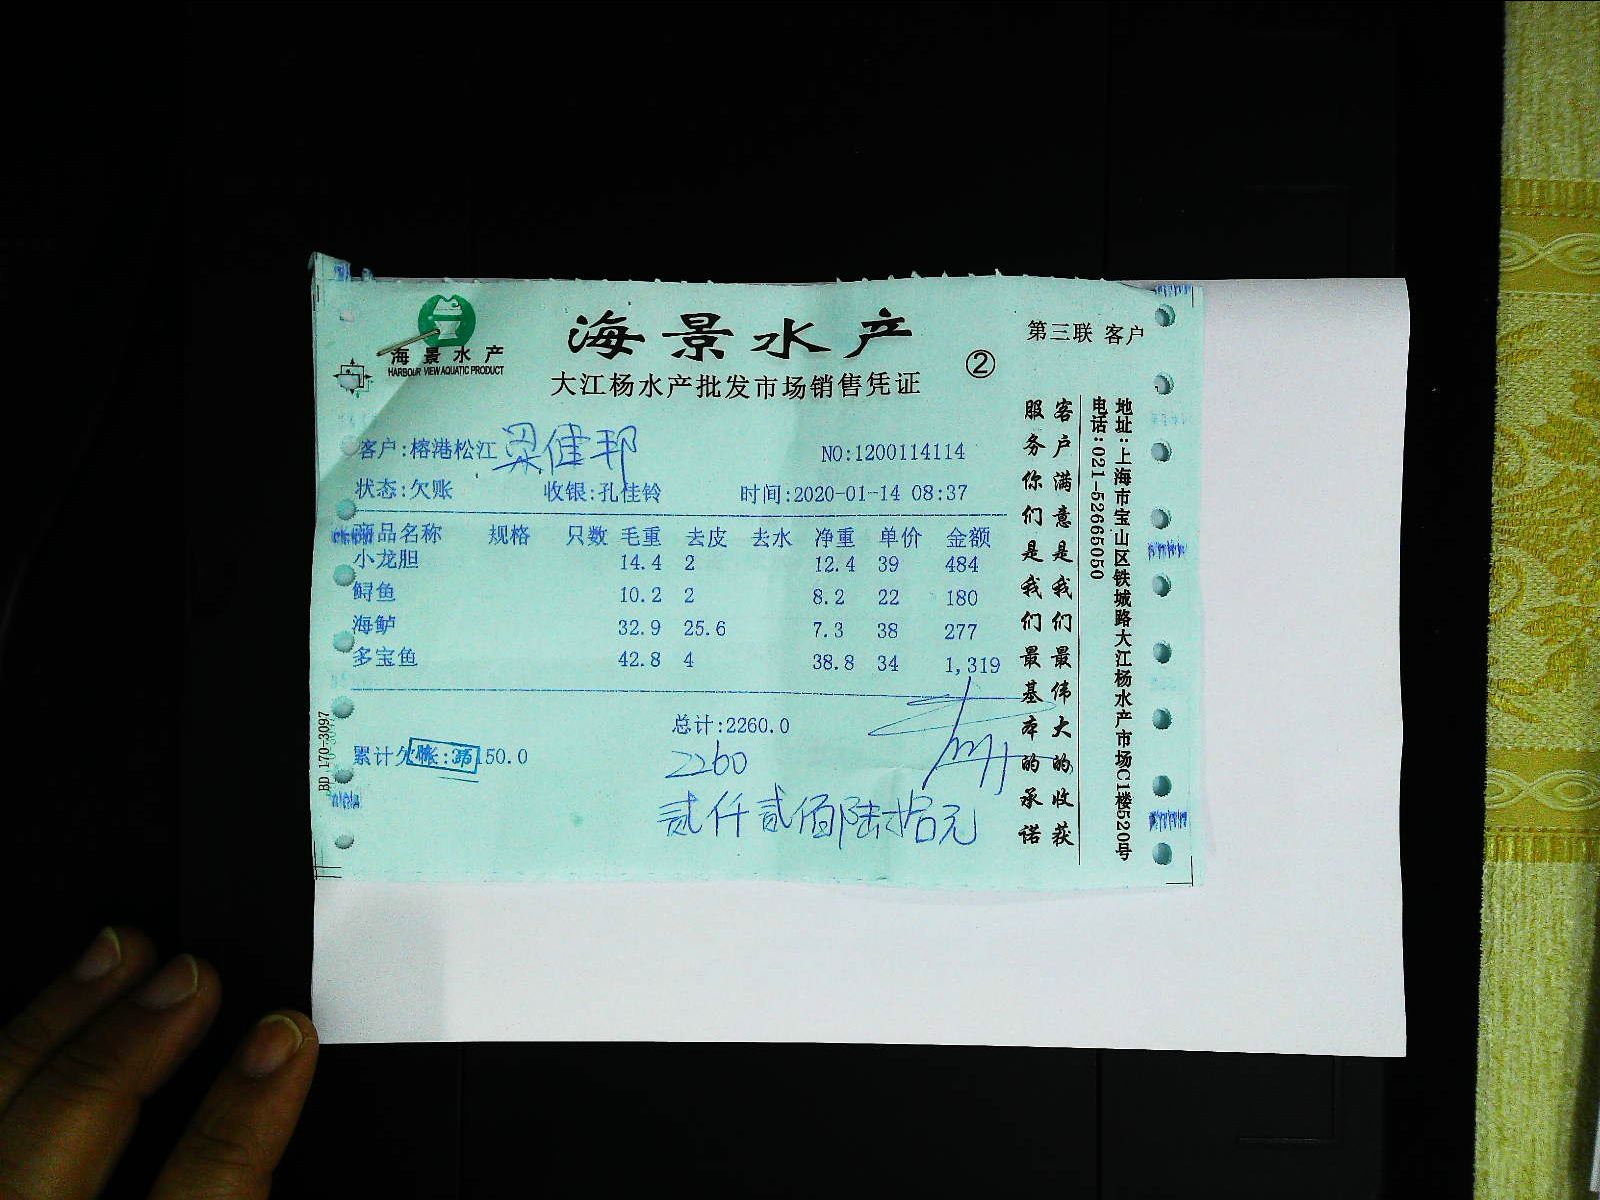 海景水产
HARBOUR VIEW AQUATIC PRODUCT
海景水产
大江杨水产批发市场销售凭证
②
第三联 客户
客户:榕港松江 梁佳邦
NO:1200114114
状态:欠账 收银:孔佳铃 时间:2020-01-14 08:37
商品名称 规格 只数 毛重 去皮 去水 净重 单价 金额
小龙胆 14.4 2 12.4 39 484
鲟鱼 10.2 2 8.2 22 180
海鲈 32.9 25.6 7.3 38 277
多宝鱼 42.8 4 38.8 34 1,319
总计:2260.0
累计欠账: 150.0
2260
贰仟贰佰陆拾元
客户满意是我们最伟大的收获
服务你们是我们最基本的承诺
地址:上海市宝山区铁城路大江杨水产市场C1楼520号
电话:021-52665050
BD 170-3097